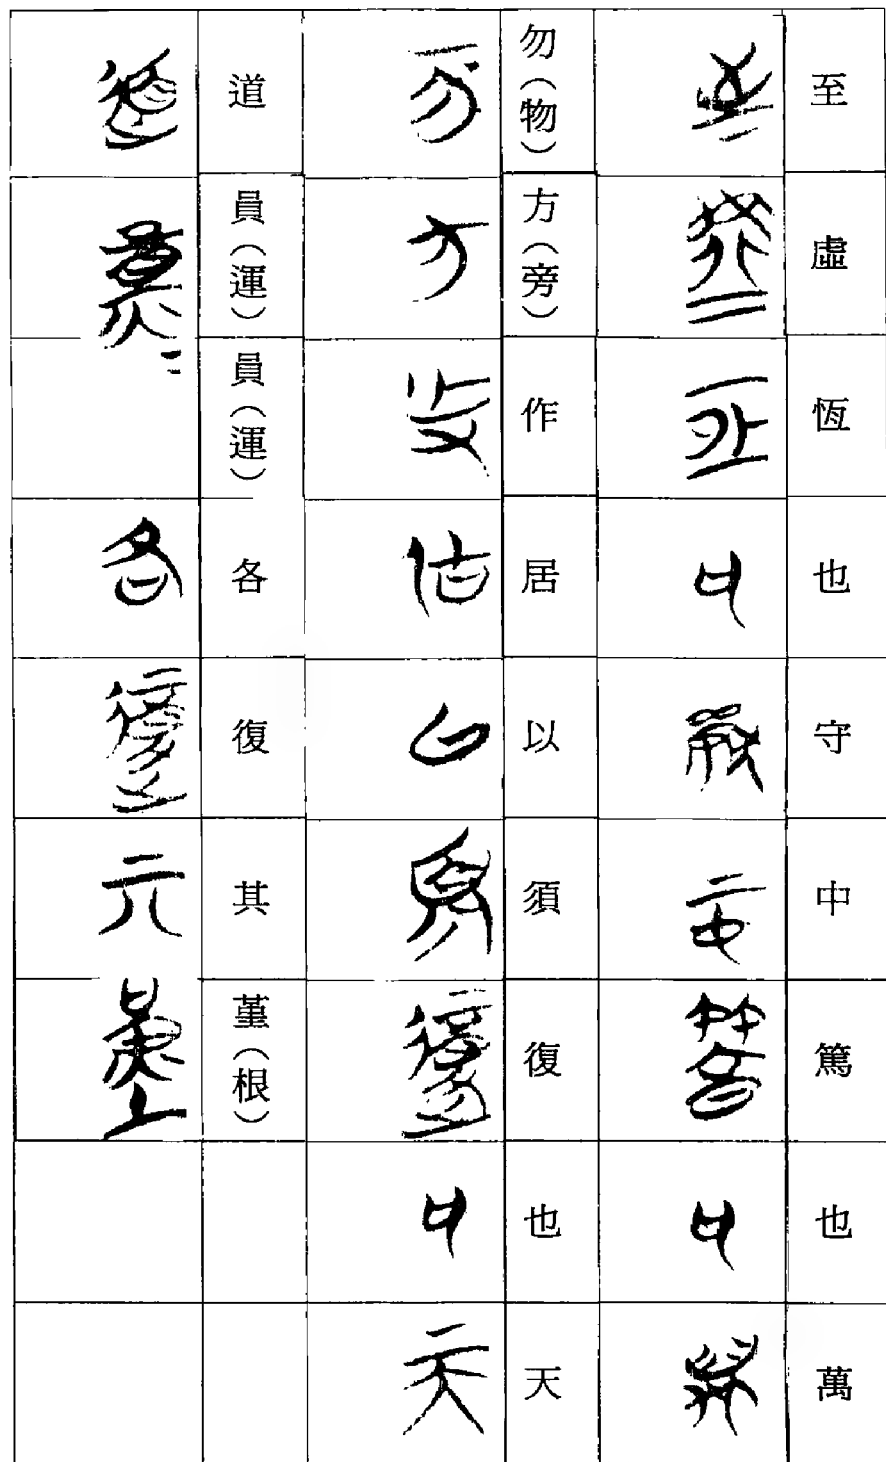 至虛恆也守中篤也萬
勿(物)方(旁)作居以須復也天
道員(運)員(運)各復其堇(根)